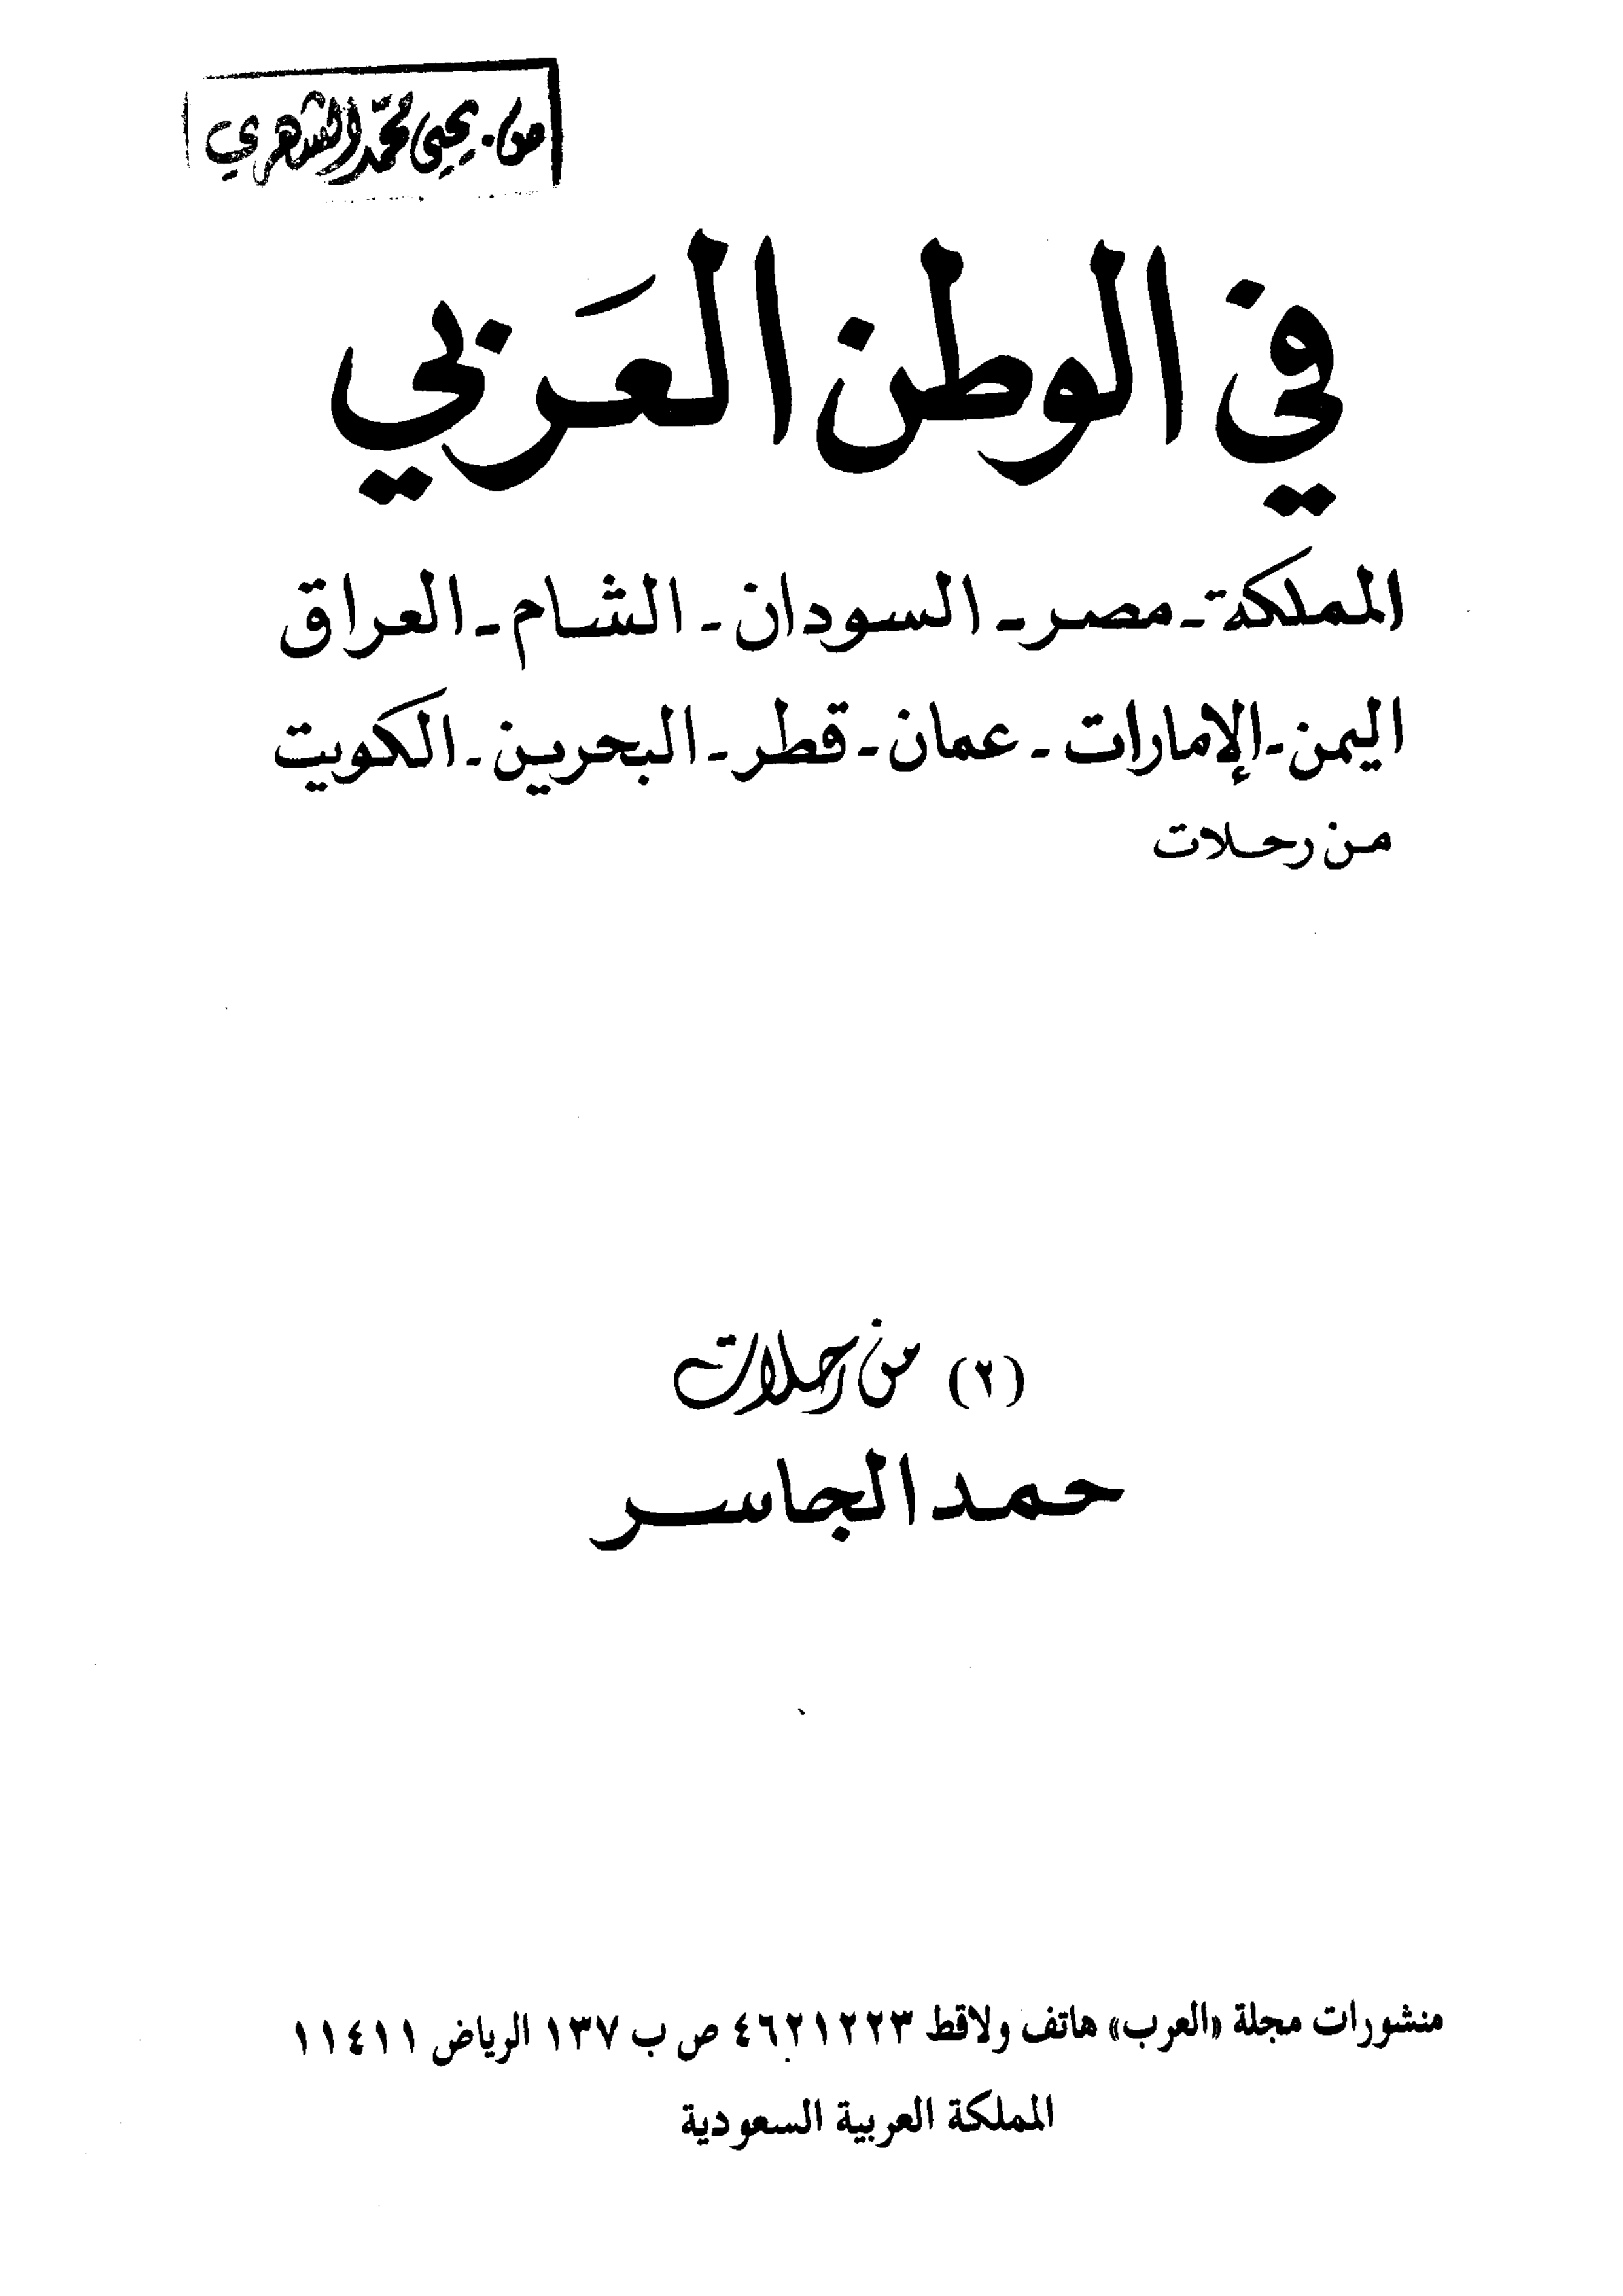 يحيى محمد الشهري
في الوطن العَربي
المملكة - مصر - السودان - الشام - العراق
اليمن - الإمارات - عمان - قطر - البحرين - الكويت
من رحلات
(٢) من رحلات
حمد الجاسر
منشورات مجلة «العرب» هاتف ولاقط ٤٦٢١٢٢٣ ص ب ١٣٧ الرياض ١١٤١١
المملكة العربية السعودية